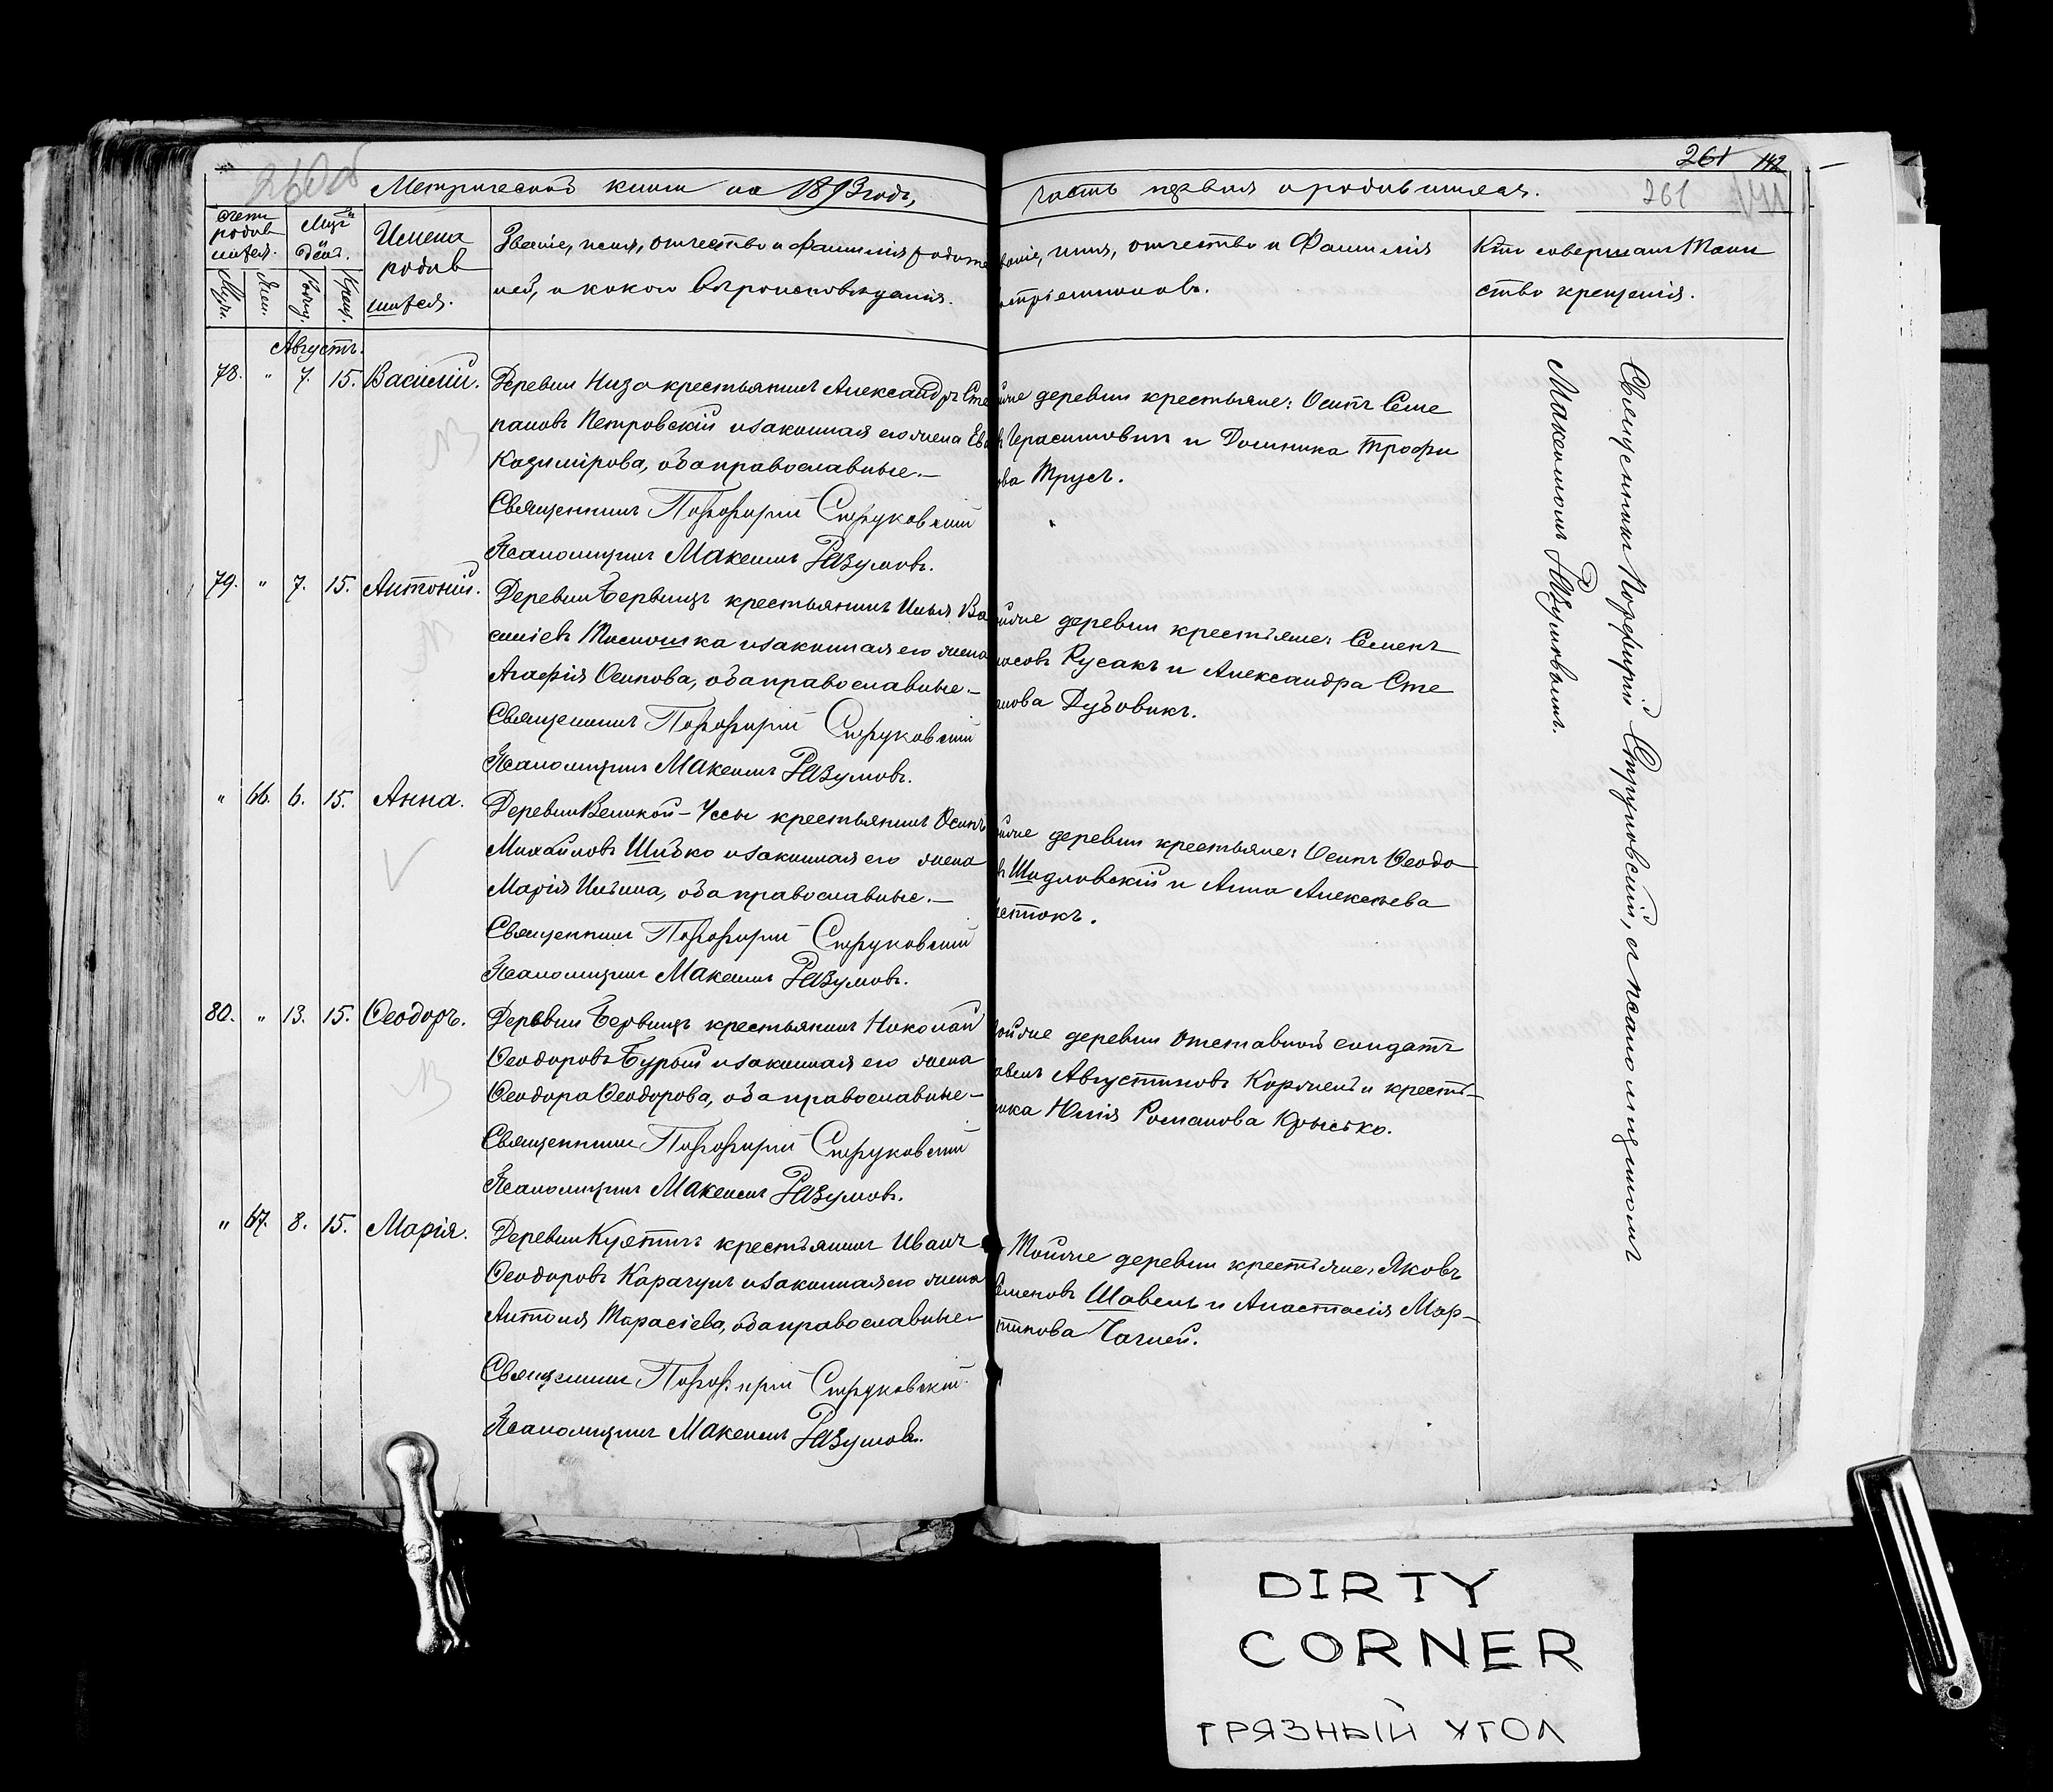 260об
Метрической книги на 1893 годъ,
Счетъ родив шихся.
Мѣся день.
Имена родив шихся.
Званіе, имя, отчество и фамилія родите
лей, и какого вѣроисповѣданія.
Муж. Жен. Рожд. Крещ.
Августъ.
78. " 7. 15. Василій. Деревни Низо крестьянинъ Александръ Сте
пановъ Петровскій и законная его жена Ева
Казимірова, оба православные.—
Священникъ Порфирій Струковскій
Псаломщикъ Максимъ Разумовъ.
79. " 7. 15. Антоній. Деревни Бервищъ крестьянинъ Илья Ва
силіевъ и законная его жена
Агафія Осипова, оба православные.—
Священникъ Порфирій Струковскій
Псаломщикъ Максимъ Разумовъ.
" 66. 6. 15. Анна. Деревни Великой-Уссы крестьянинъ Осипъ
Михайловъ Шибко и законная его жена
Марія Ильина, оба православные.—
Священникъ Порфирій Струковскій
Псаломщикъ Максимъ Разумовъ.
80. " 13. 15. Ѳеодоръ. Деревни Бервищъ крестьянинъ Николай
Ѳеодоровъ Бурый и законная его жена
Ѳеодора Ѳеодорова, оба православные—
Священникъ Порфирій Струковскій
Псаломщикъ Максимъ Разумовъ.
" 67. 8. 15. Марія. Деревни Куятичъ крестьянинъ Иванъ
Ѳеодоровъ Карагучъ и законная его жена
Антоля Тарасіева, оба православные—
Священникъ Порфирій Струковскій
Псаломщикъ Максимъ Разумовъ.
261 142
часть первая о родившихся.
261
вание, имя, отчество и Фамилія
воспріемниковъ.
Кто совершалъ Таин
ство крещенія.
деревни крестьяне: Осипъ Семе
въ Герасимовичъ и Домника Трофи
ова Трусъ.
деревни крестьяне: Семенъ
Русакъ и Александра Сте
анова Дубовикъ.
деревни крестьяне: Осипъ Ѳеодо
въ Шидловскій и Анна Алексѣева
деревни отставной солдатъ
авелъ Августиновъ Корженъ и кресть-
янка Юлія Романова Крысько.
Тойже деревни крестьяне: Яковъ
Семеновъ Шавель и Анастасія Мар-
тинова Чаглей.
Священникъ Порфирій Струковскій, съ псаломщикомъ
Максимомъ Разумовымъ.
DIRTY
CORNER
ГРЯЗНЫЙ УГОЛ